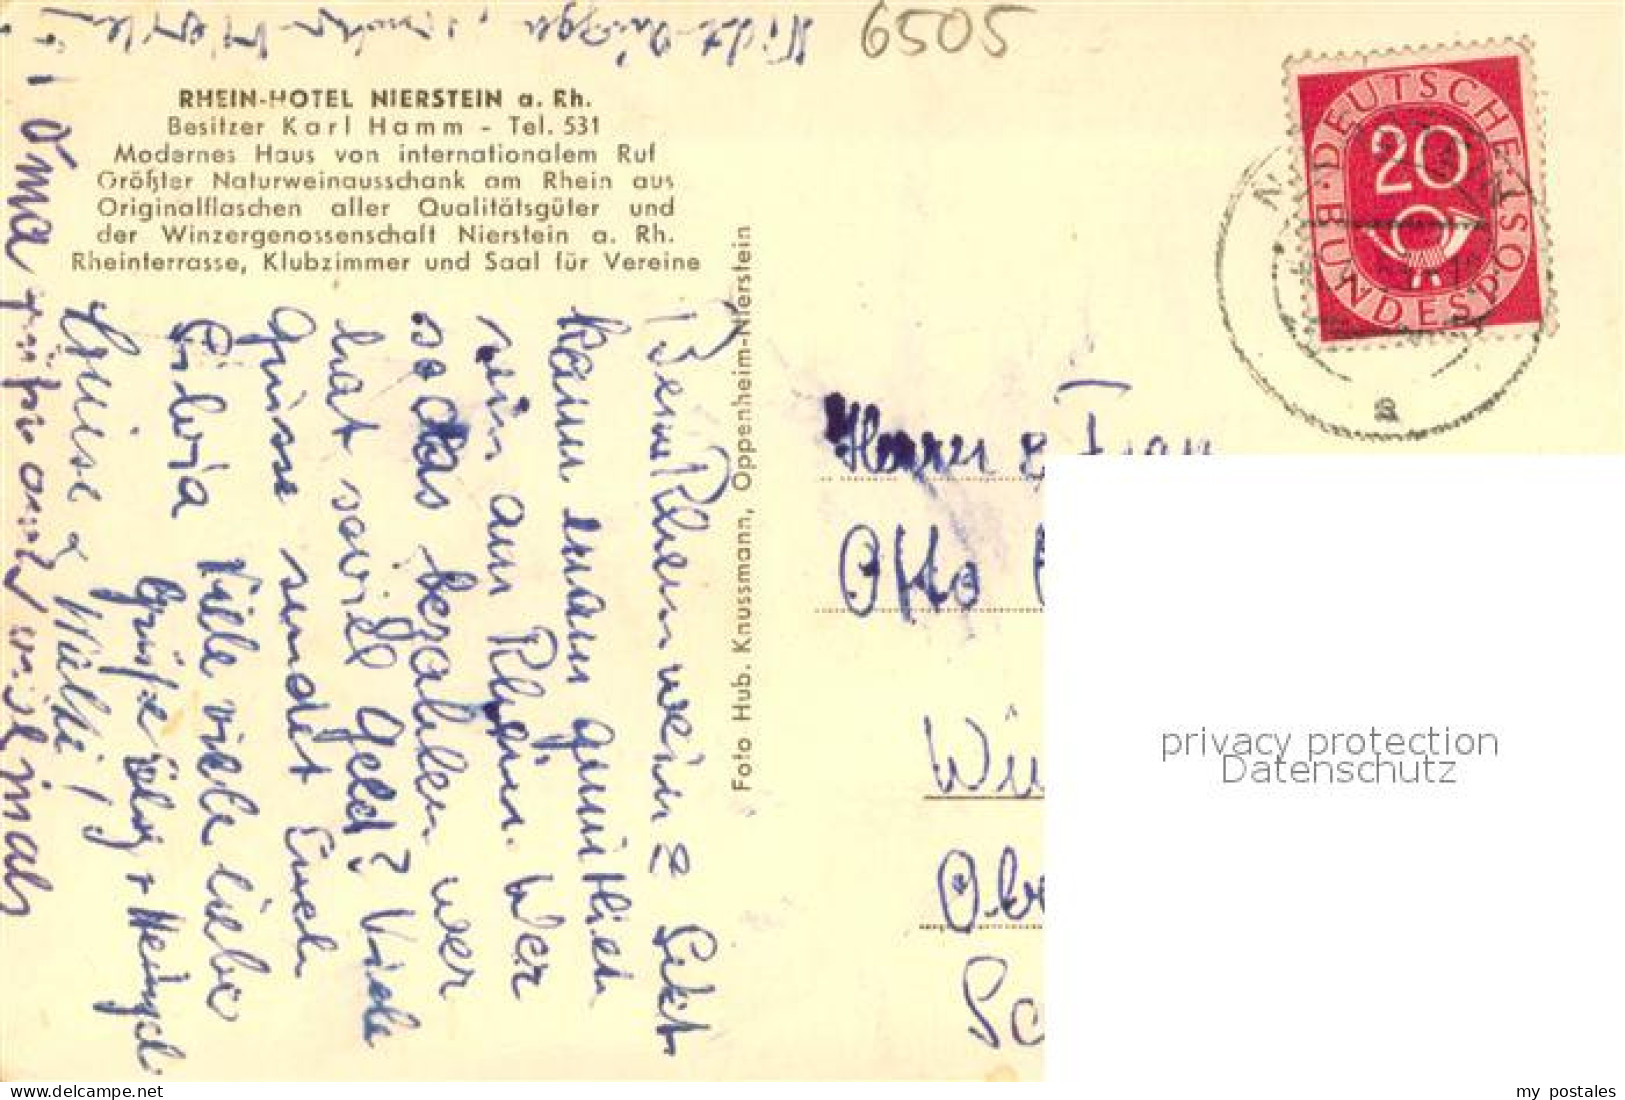 6505
RHEIN-HOTEL NIERSTEIN a. Rh.
Besitzer Karl Hamm - Tel. 531
Modernes Haus von internationalem Ruf
Größter Naturweinausschank am Rhein aus
Originalflaschen aller Qualitätsgüter und
der Winzergenossenschaft Nierstein a. Rh.
Rheinterrasse, Klubzimmer und Saal für Vereine
Beim Rheinwein & Sekt
kann man gemütlich
sein am Rhein. Wer
so das bezahlen wer
hat soviel Geld? Viele
Grüsse sendet Euch
Silvia Viele viele liebe
Grüße
Luise &
Oma auch vielmals
Foto Hub. Knussmann, Oppenheim-Nierstein
DEUTSCHE BUNDESPOST
20
a
Herrn & Frau
Otto
privacy protection
Datenschutz
delcampe.net
my postales